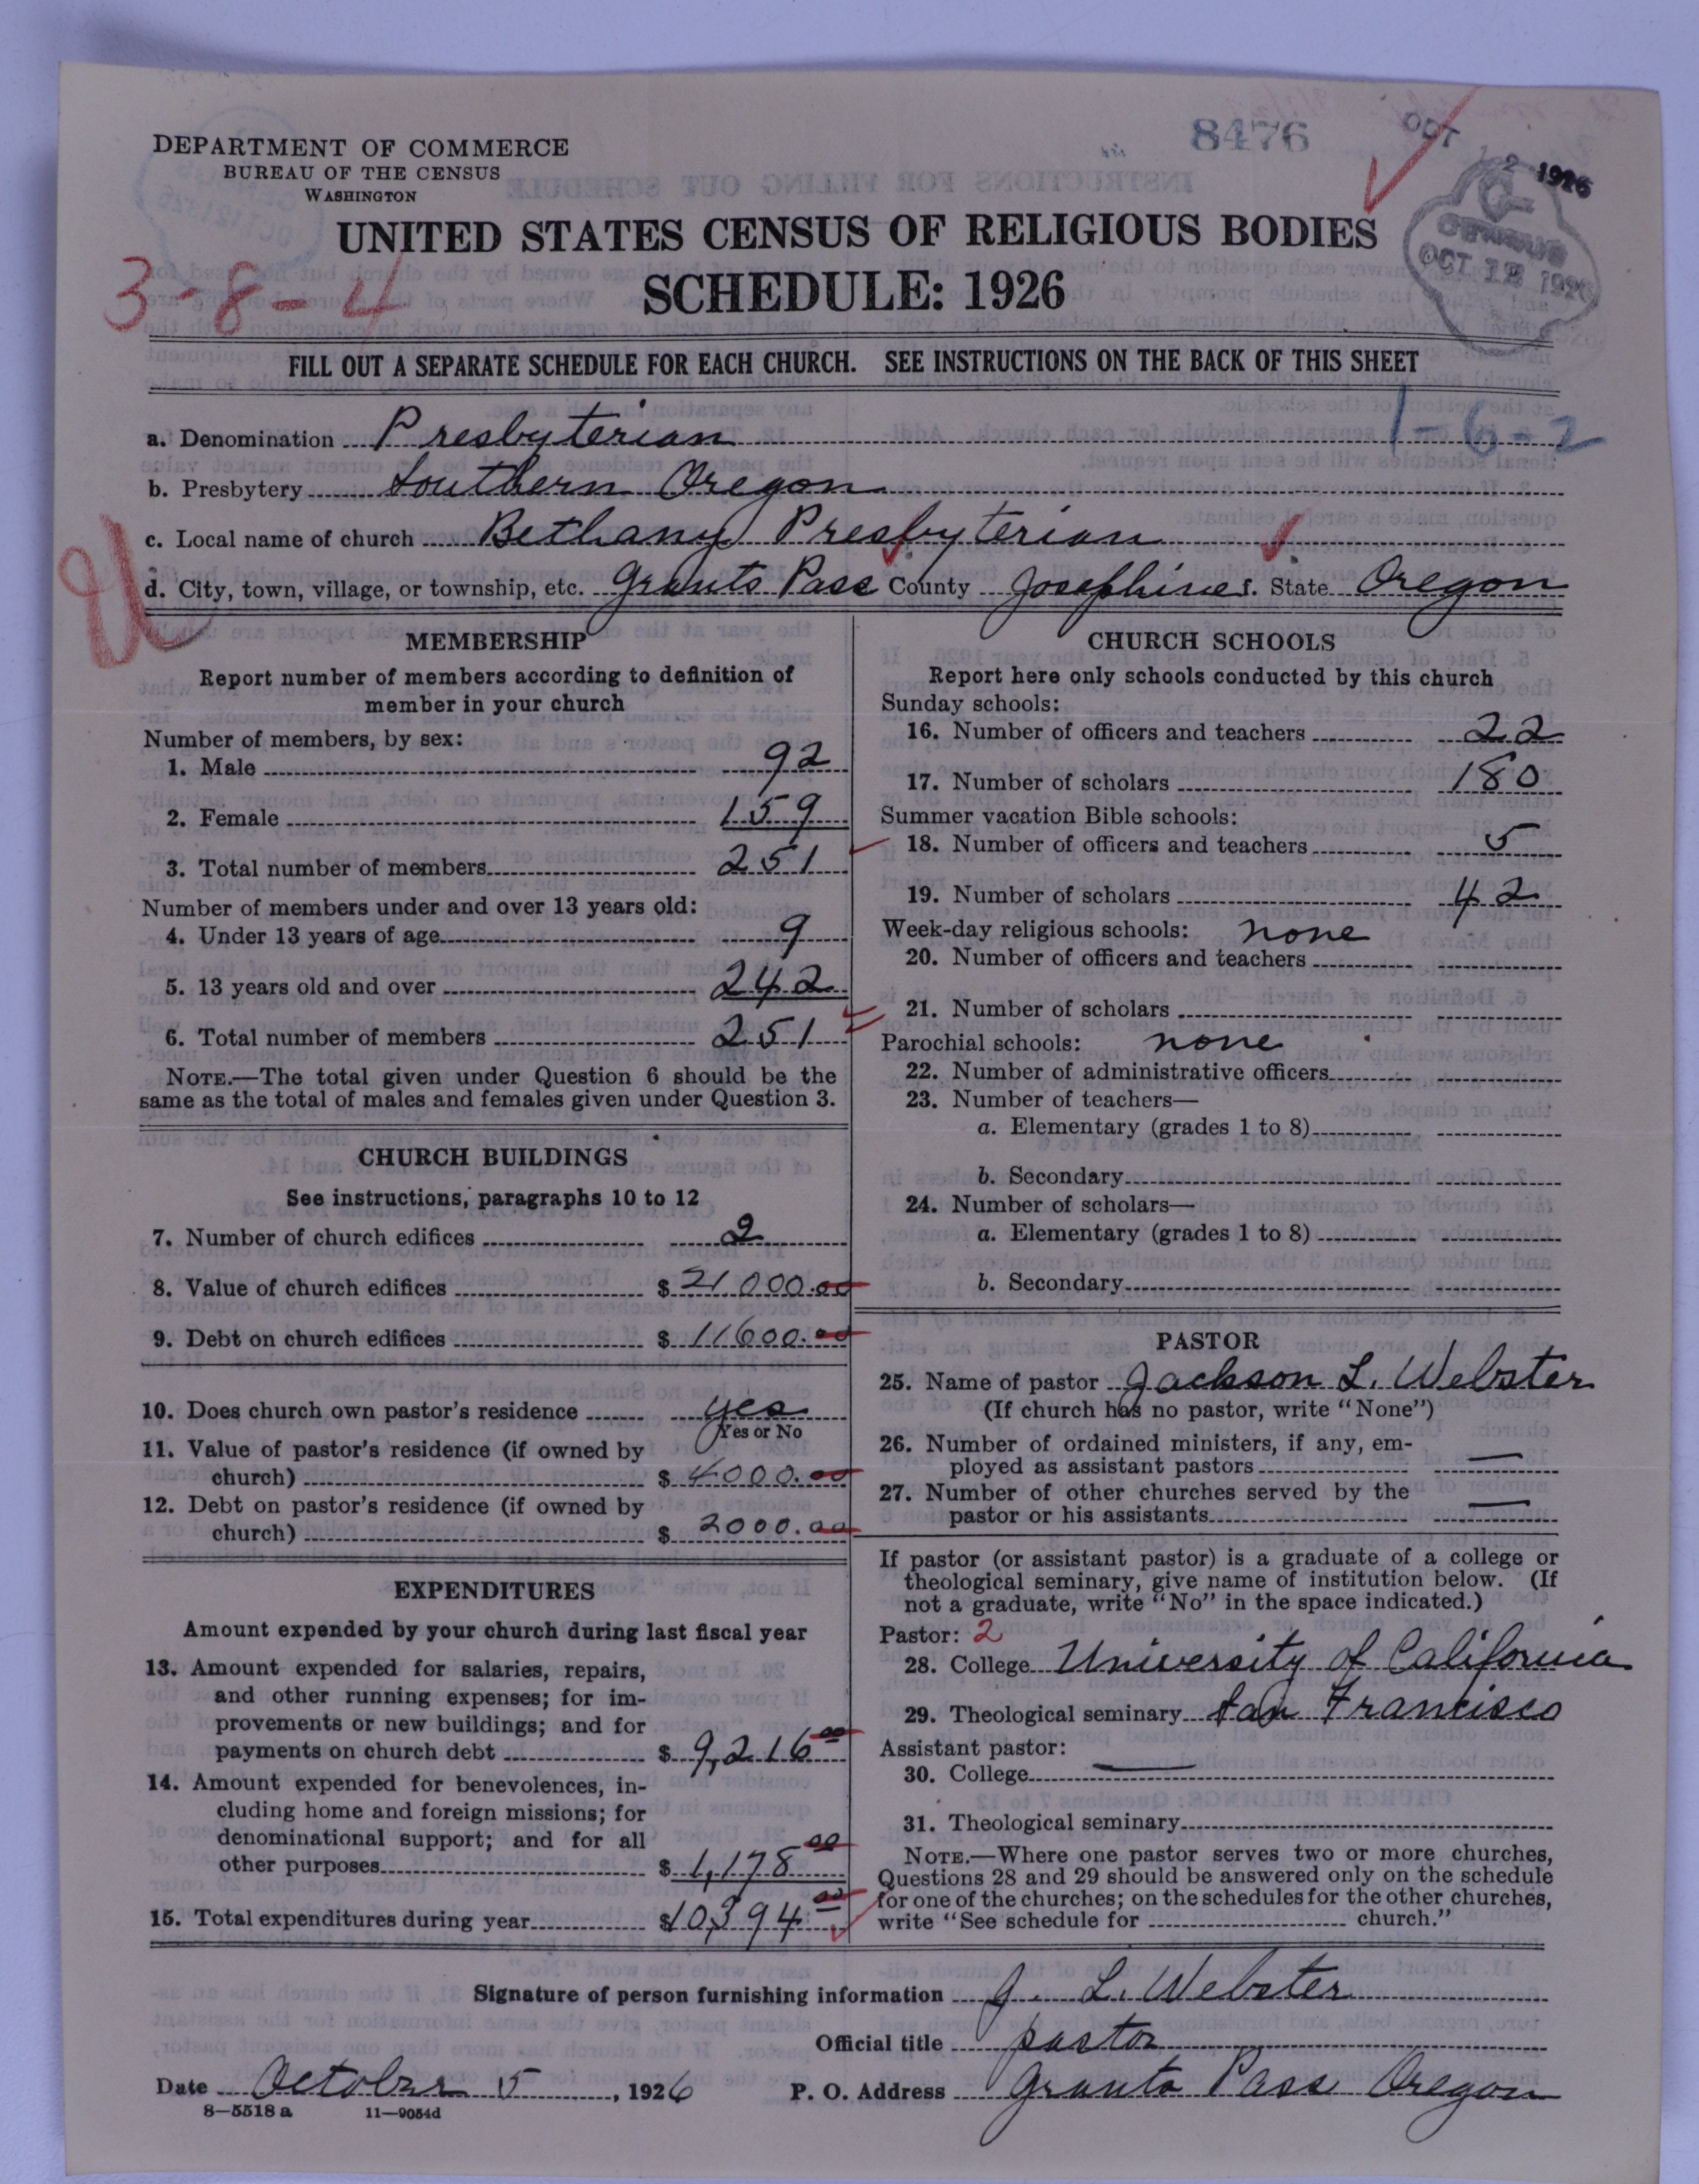 DEPARTMENT OF COMMERCE
BUREAU OF THE CENSUS
WASHINGTON
8476
OCT 12 1926
CENSUS
OCT 12 1926
UNITED STATES CENSUS OF RELIGIOUS BODIES
SCHEDULE: 1926
3-8-4
FILL OUT A SEPARATE SCHEDULE FOR EACH CHURCH. SEE INSTRUCTIONS ON THE BACK OF THIS SHEET
1-6-2
a. Denomination Presbyterian
b. Presbytery Southern Oregon
c. Local name of church Bethany Presbyterian
d. City, town, village, or township, etc. Grants Pass County Josephine f. State Oregon
MEMBERSHIP
Report number of members according to definition of
member in your church
Number of members, by sex:
1. Male 92
2. Female 159
3. Total number of members 251
Number of members under and over 13 years old:
4. Under 13 years of age 9
5. 13 years old and over 242
6. Total number of members 251
NOTE.—The total given under Question 6 should be the
same as the total of males and females given under Question 3.
CHURCH BUILDINGS
See instructions, paragraphs 10 to 12
7. Number of church edifices 2
8. Value of church edifices $ 21000.00
9. Debt on church edifices $ 11600.00
10. Does church own pastor's residence yes
Yes or No
11. Value of pastor's residence (if owned by
church) $ 4000.00
12. Debt on pastor's residence (if owned by
church) $ 2000.00
EXPENDITURES
Amount expended by your church during last fiscal year
13. Amount expended for salaries, repairs,
and other running expenses; for im-
provements or new buildings; and for
payments on church debt $ 9,216 00
14. Amount expended for benevolences, in-
cluding home and foreign missions; for
denominational support; and for all
other purposes $ 1,178 00
15. Total expenditures during year $10,394 00
CHURCH SCHOOLS
Report here only schools conducted by this church
Sunday schools:
16. Number of officers and teachers 22
17. Number of scholars 180
Summer vacation Bible schools:
18. Number of officers and teachers 5
19. Number of scholars 42
Week-day religious schools: none
20. Number of officers and teachers
21. Number of scholars
Parochial schools: none
22. Number of administrative officers
23. Number of teachers—
a. Elementary (grades 1 to 8)
b. Secondary
24. Number of scholars—
a. Elementary (grades 1 to 8)
b. Secondary
PASTOR
25. Name of pastor Jackson L. Webster
(If church has no pastor, write "None")
26. Number of ordained ministers, if any, em-
ployed as assistant pastors —
27. Number of other churches served by the
pastor or his assistants —
If pastor (or assistant pastor) is a graduate of a college or
theological seminary, give name of institution below. (If
not a graduate, write "No" in the space indicated.)
Pastor: 2
28. College University of California
29. Theological seminary San Francisco
Assistant pastor:
30. College —
31. Theological seminary
NOTE.—Where one pastor serves two or more churches,
Questions 28 and 29 should be answered only on the schedule
for one of the churches; on the schedules for the other churches,
write "See schedule for church."
Signature of person furnishing information J. L. Webster
Official title pastor
Date October 5, 1926 P. O. Address Grants Pass Oregon
8—5518 a 11—9054d